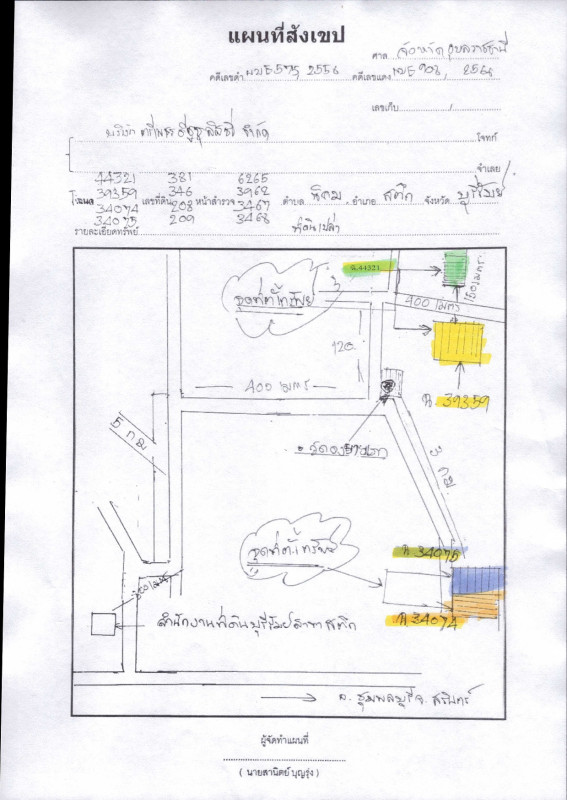 แผนที่สังเขป
ศาล จังหวัดอุบลราชธานี
คดีเลขดำ ผบE 575, 2556 คดีเลขแดง ผบE 908, 256
เลขเก็บ /
บริษัท จำกัด โจทก์
จำเลย
44321 381 6265
39359 346 3962
โฉนด เลขที่ดิน หน้าสำรวจ ตำบล นิคม อำเภอ สตึก จังหวัด บุรีรัมย์
34074 208 3467
34075 209 3468
รายละเอียดทรัพย์ ที่ดินเปล่า
ฉ.44321
จุดที่ตั้งทรัพย์
400 เมตร
120
400 เมตร
ฉ 39359
5 กม
3 กม
ฉ 34075
จุดที่ตั้งทรัพย์
สำนักงานที่ดินบุรีรัมย์สาขาสตึก
ฉ.34074
อ. ชุมพลบุรี จ. สุรินทร์
ผู้จัดทำแผนที่
( นายสานิตย์ บุญรุ่ง )